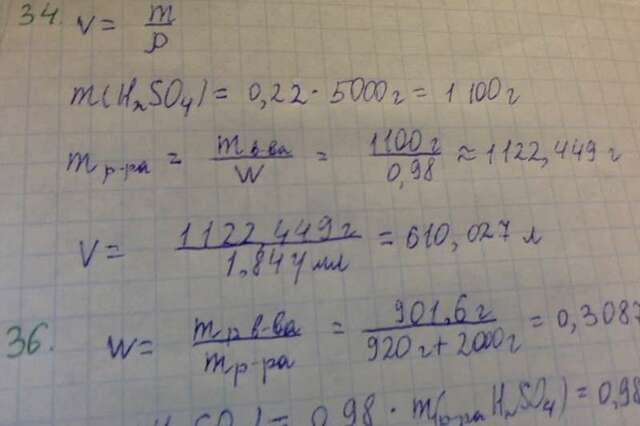 34. V = m/ρ
m(H₂SO₄) = 0,22 · 5000 г = 1 100 г
m р-ра = m в-ва/W = 1100 г/0,98 ≈ 1122,449 г
V = 1122,449 г/1,84 г/мл = 610,027 л
36. W = m р.в-ва/m р-ра = 901,6 г/920 г + 2000 г = 0,3087
= 0,98 · m(р-ра H₂SO₄) = 0,98